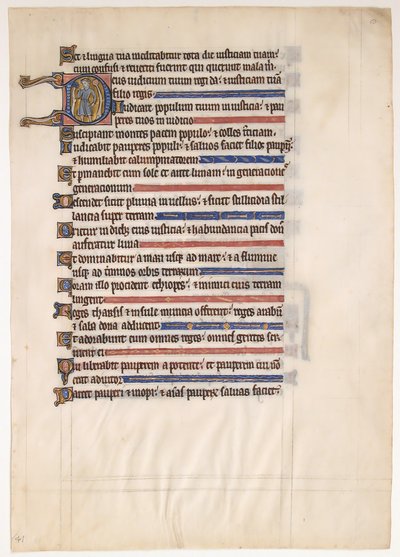 Et lingua mea meditabitur tota die iusticiam tuam:
cum confusi & reveriti fuerint qui querunt mala m.
Deus iudicium tuum regi da: & iusticiam tuā
filio regis.
Iudicare populum tuum in iusticia: & pau
peres tuos in iudicio
Suscipiant montes pacem populo: & colles iusticiam.
Iudicabit pauperes populi: & salvos faciet filios pauperū:
& humiliabit calumpniatorem
Et permanebit cum sole et ante lunam: in generatione &
generationum
Descendet sicut pluvia in vellus: & sicut stillicidia stil
lancia super terram
Orietur in dieb; eius iusticia: & habundancia pacis donec
auferatur luna
Et dominabitur a mari usq; ad mare: & a flumine
usq; ad terminos orbis terrarum
Coram illo procident ethiopes: & inimici eius terram
lingent
Reges tharsis & insule munera offerent: reges arabū
& saba dona adducent
Et adorabunt eum omnes reges: omnes gentes ser
vient ei
Quia liberabit pauperem a potente: et pauperem cui nō
erat adiutor
Parcet pauperi & inopi: & aīas pauperū salvas faciet:
41